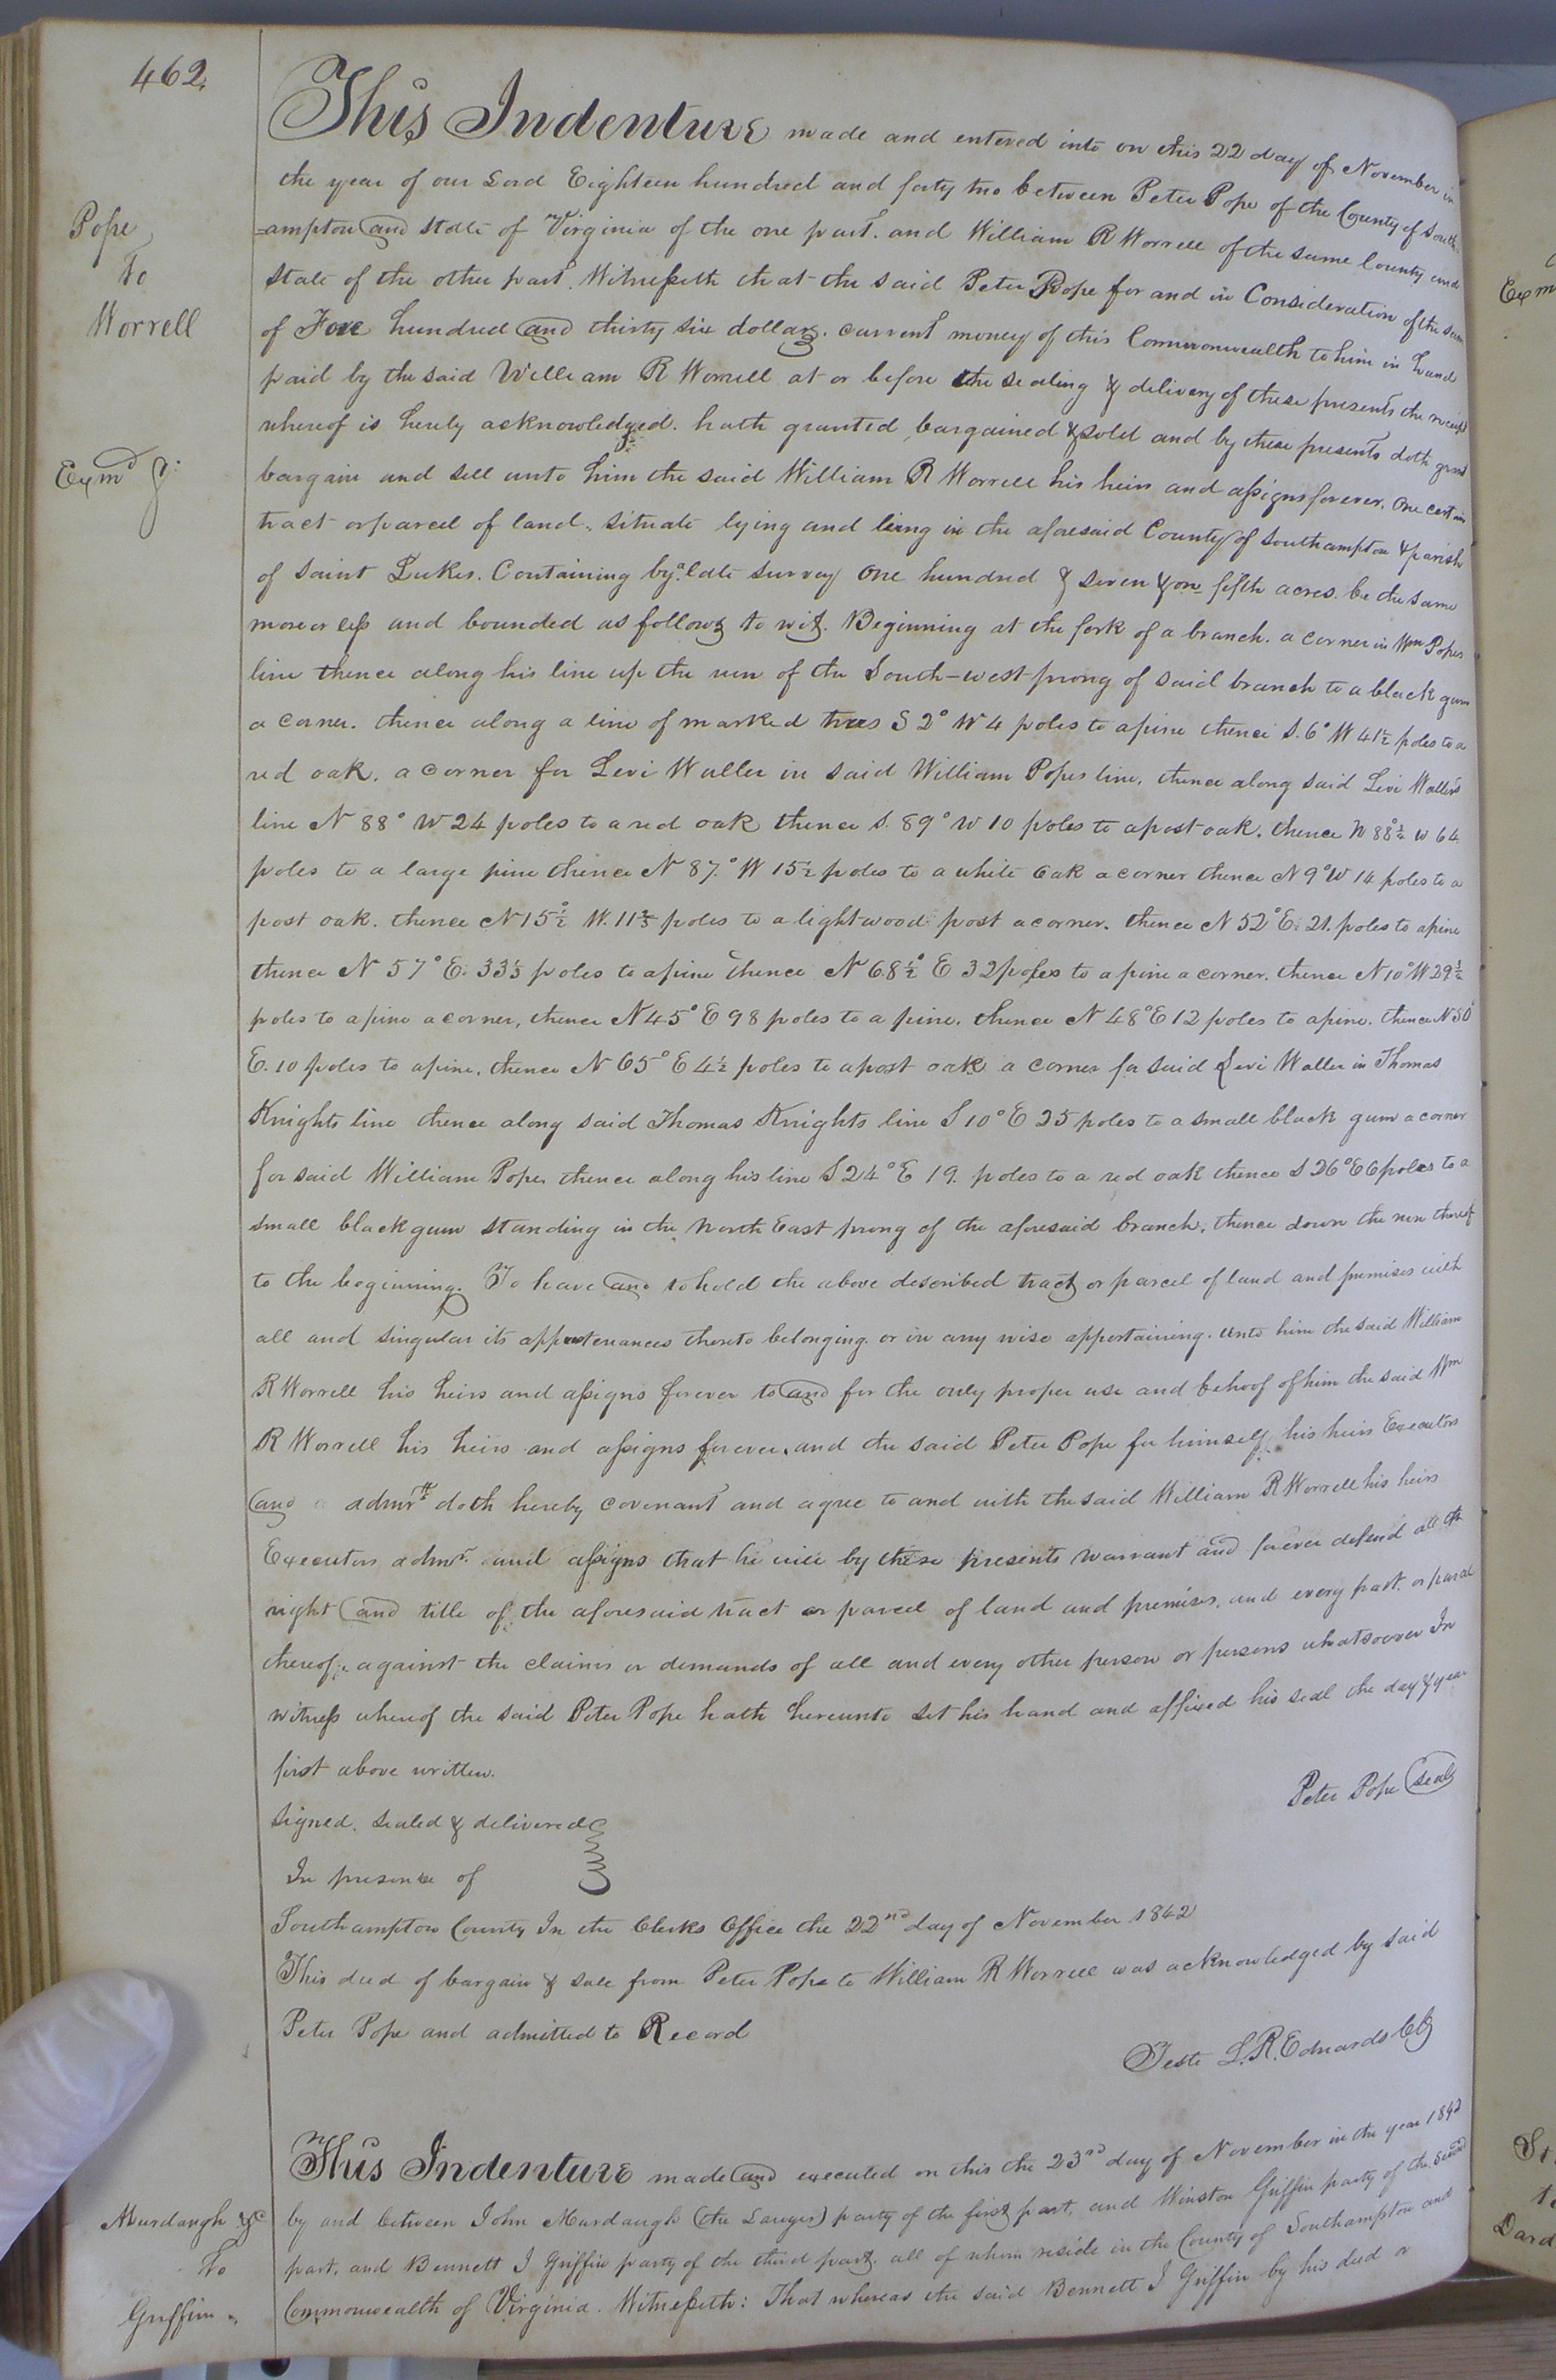 462.
This Indenture made and entered into on this 22 day of November in
the year of our Lord Eighteen hundred and forty two between Peter Pope of the County of South-
Pope
=ampton and State of Virginia of the one part. and William R Worrell of the same County and
To
State of the other part. Witnesseth that the said Peter Pope for and in Consideration of the sum
Worrell
of Five hundred and thirty six dollars. current money of this Commonwealth to him in hand
paid by the said William R Worrell at or before the sealing & delivery of these presents the receipt
whereof is herely acknowledged. hath granted bargained & sold and by these presents doth grant
Exmd
bargain and sell unto him the said William R Worrell his heirs and assigns forever. One certain
tract or parcel of land. situate lying and being in the aforesaid County of Southampton & parish
of Saint Lukes. Containing by a late survey One hundred & seven & one fifth acres. be the same
more or less and bounded as follows to wit. Beginning at the fork of a branch. a corner in Wm Popes
line thence along his line up the run of the South-west prong of said branch to a black gum
a corner. thence along a line of marked trees S 2° W 4 poles to a pine thence S. 6° W 41½ poles to a
red oak. a corner for Levi Waller in said William Popes line, thence along said Levi Wallers
line N 88° W 24 poles to a red oak thence S. 89° W 10 poles to a post oak. thence N 88½° W 64
poles to a large pine thence N 87.° W 15½ poles to a white oak a corner thence N 9° W 14 poles to a
post oak. thence N 15½° W. 11⅗ poles to a lightwood post a corner. thence N 52° E. 21. poles to a pine
thence N 57° E. 33⅓ poles to a pine thence N 68½° E 32 poles to a pine a corner. thence N 10° W 29½
poles to a pine a corner, thence N 45° E 98 poles to a pine. thence N 48° E 12 poles to a pine. thence N 50°
E. 10 poles to a pine, thence N 65° E 4½ poles to a post oak a corner for said Levi Waller in Thomas
Knights line thence along said Thomas Knights line S 10° E 25 poles to a small black gum a corner
for said William Pope, thence along his line S 24° E 19. poles to a red oak thence S 26° E 6 poles to a
small black gum standing in the North East prong of the aforesaid branch, thence down the run thereof
to the beginning. To have and to hold the above described tract or parcel of land and premises with
all and singular its appurtenances thereto belonging. or in any wise appertaining. unto him the said William
R Worrell his heirs and assigns forever to and for the only proper use and behoof of him the said Wm
R Worrell his heirs and assigns forever, and the said Peter Pope for himself, his heirs Executors
and admrs doth hereby covenant and agree to and with the said William R Worrell his heirs
Executors admrs. and assigns that he will by these presents warrant and forever defend all the
right and title of the aforesaid tract or parcel of land and premises, and every part. or parcel
thereof, against the claims or demands of all and every other person or persons whatsoever In
witness whereof the said Peter Pope hath hereunto set his hand and affixed his seal the day & year
first above written.
Peter Pope Seal
Signed. Sealed & delivered
In presence of
Southampton County In the Clerks Office the 22nd day of November 1842
This deed of bargain & sale from Peter Pope to William R Worrell was acknowledged by said
Peter Pope and admitted to Record
Teste L. R. Edwards Clk
This Indenture made and executed on this the 23rd day of November in the year 1842
Murdaugh &c
by and between John Murdaugh (the Lawyer) party of the first part, and Winston Griffin party of the Second
To
part, and Bennett J Griffin party of the third part. all of whom reside in the County of Southampton and
Griffin.
Commonwealth of Virginia. Witnesseth: That whereas the said Bennett J Griffin by his deed or
Exm
To
Dard